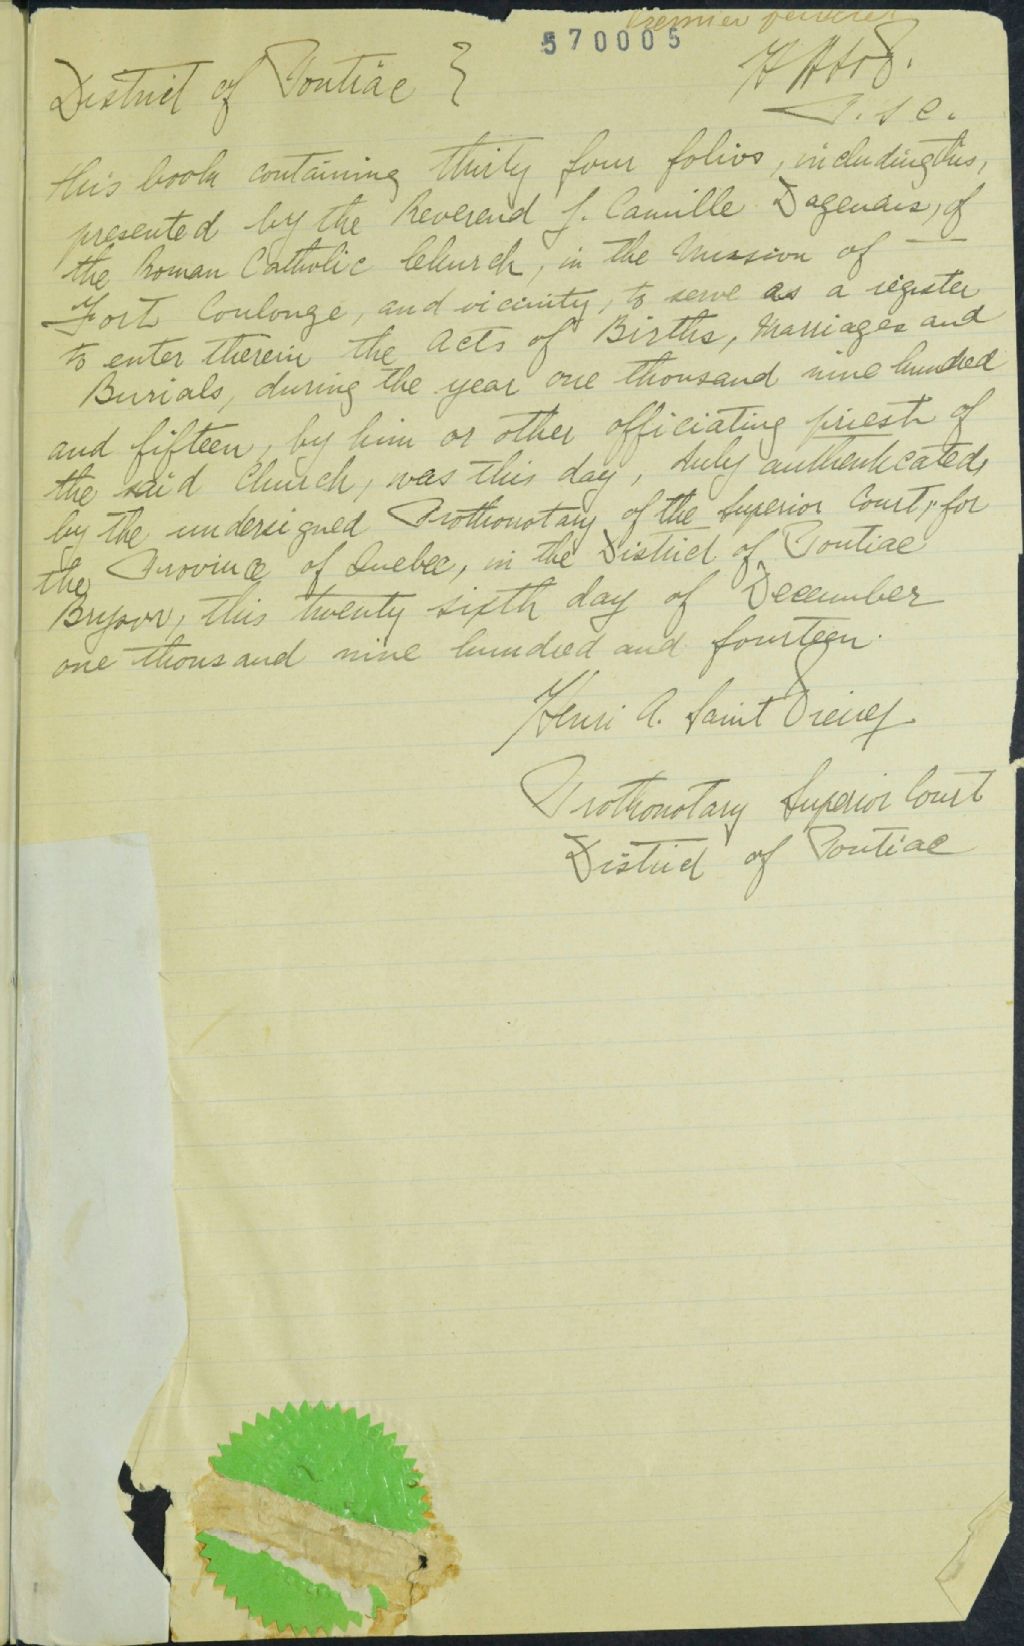 Premier feuillet
570005
District of Pontiac }
P. S C.
this book containing thirty four folios, including this,
presented by the Reverend J. Camille Dagenais, of
the Roman Catholic Church, in the Mission of —
Fort Coulonge, and vicinity, to serve as a register
to enter therein the Acts of Births, Marriages and
Burials, during the year one thousand nine hundred
and fifteen, by him or other officiating priest of
the said Church, was this day, duly authenticated,
by the undersigned Prothonotary of the Superior Court, for
the Province of Quebec, in the District of Pontiac
Bryson, this twenty sixth day of December
one thousand nine hundred and fourteen.
Henri A. Saint Pierre
Prothonotary Superior Court
District of Pontiac